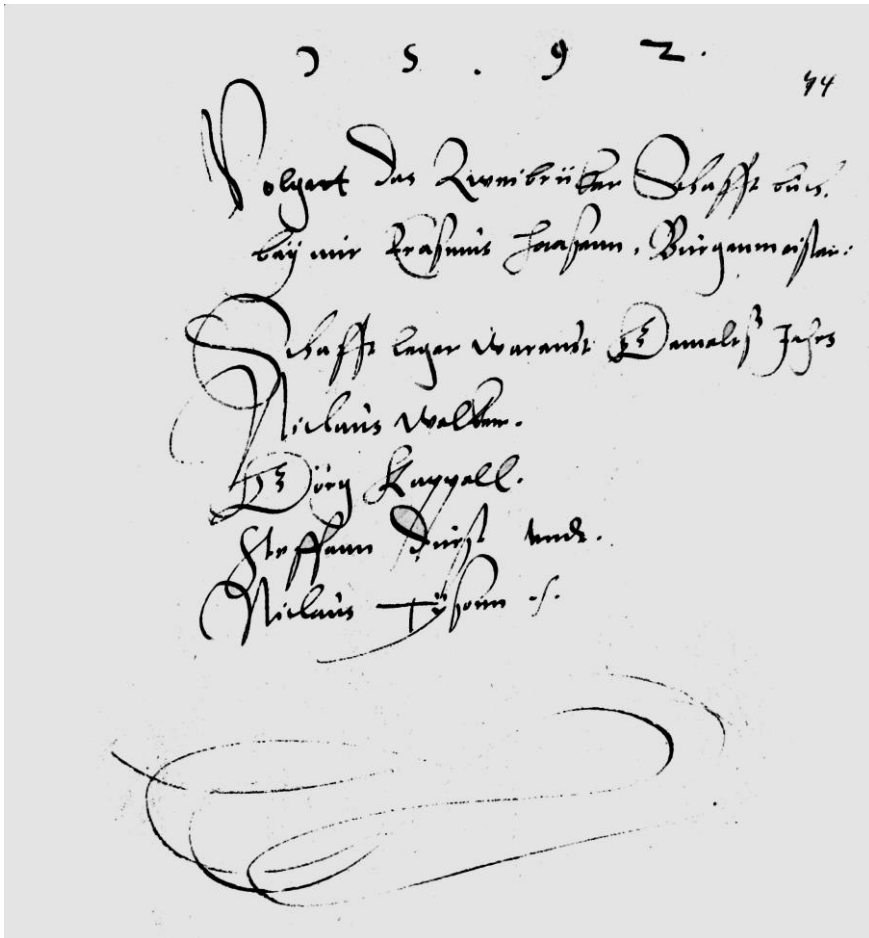 1 5 . 9 2 .
74
Volget das Zweibrücker Schafft buch.
beÿ mir Erasmus Haasenn, Bürgenmeister:
Schafft leger warenndt Damalß Jahrs
Niclaus Welcker.
Görg Kappell.
Steffann Dürst unndt.
Niclaus Tÿsonn